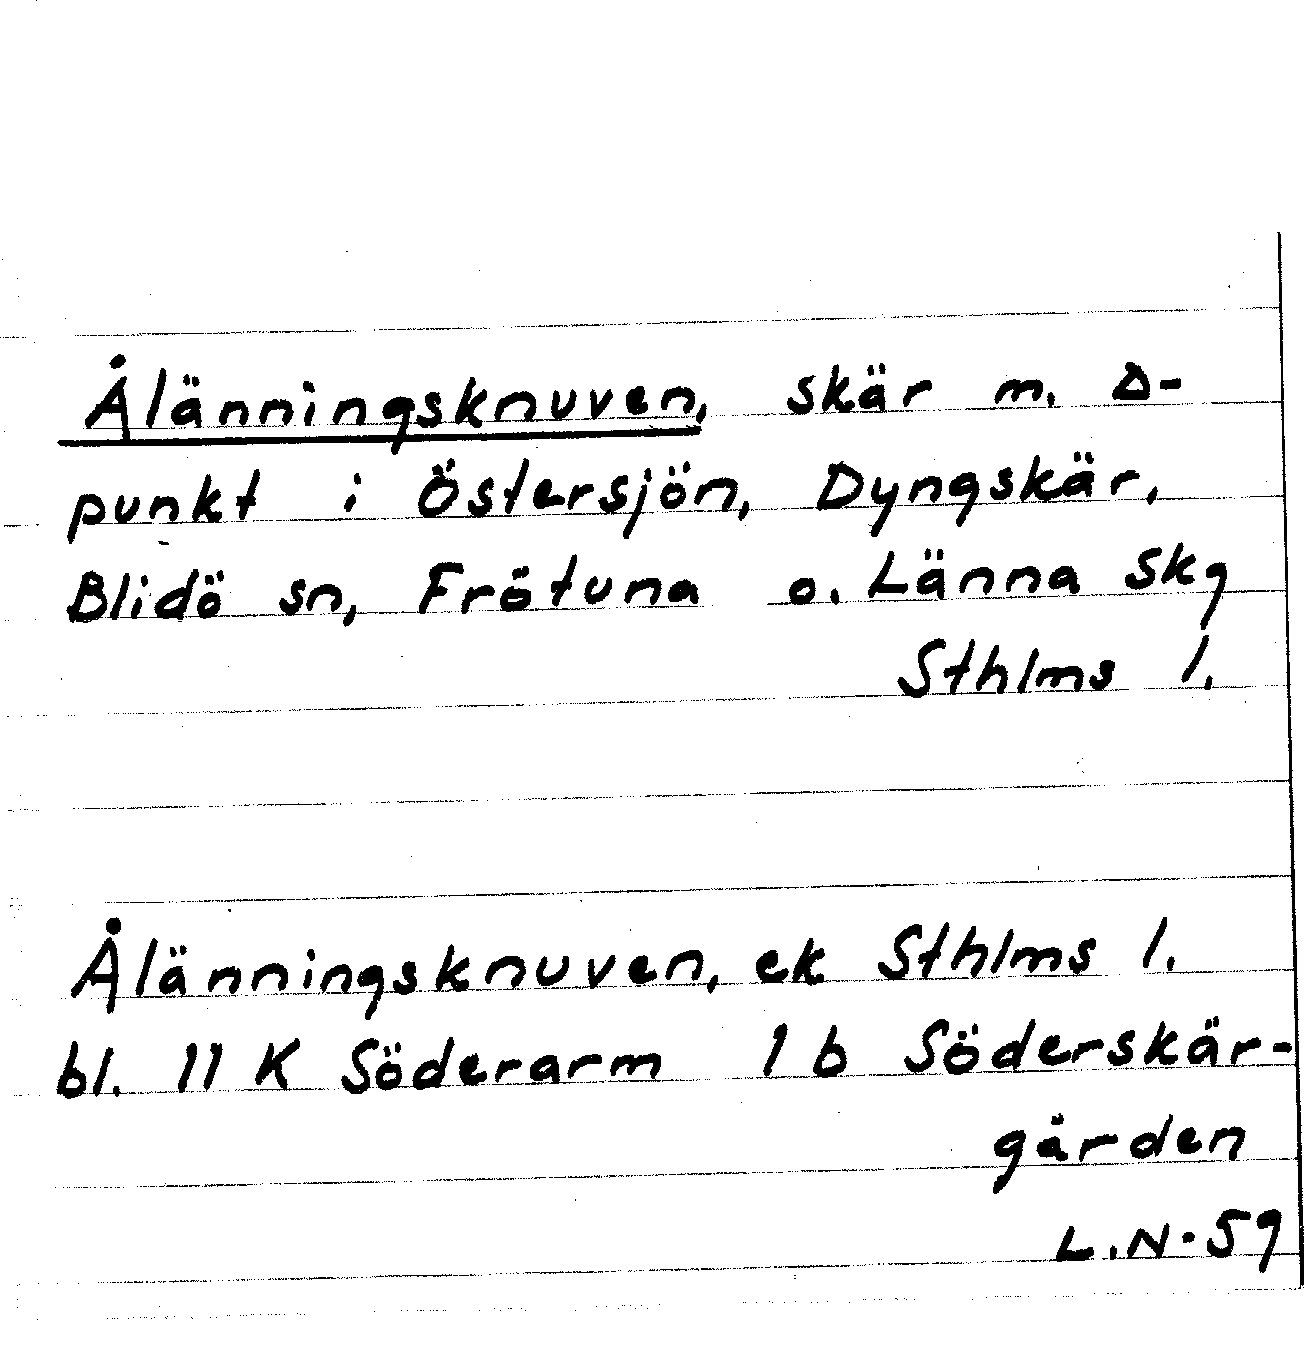 Ålänningsknuven, skär m. Δ-
punkt i Östersjön, Dyngskär,
Blidö sn, Frötuna o. Länna Skg
Sthlms l.
Ålänningsknuven, ek Sthlms l.
bl. 11 K Söderarm 1 b Söderskär-
gården
L.N. 59